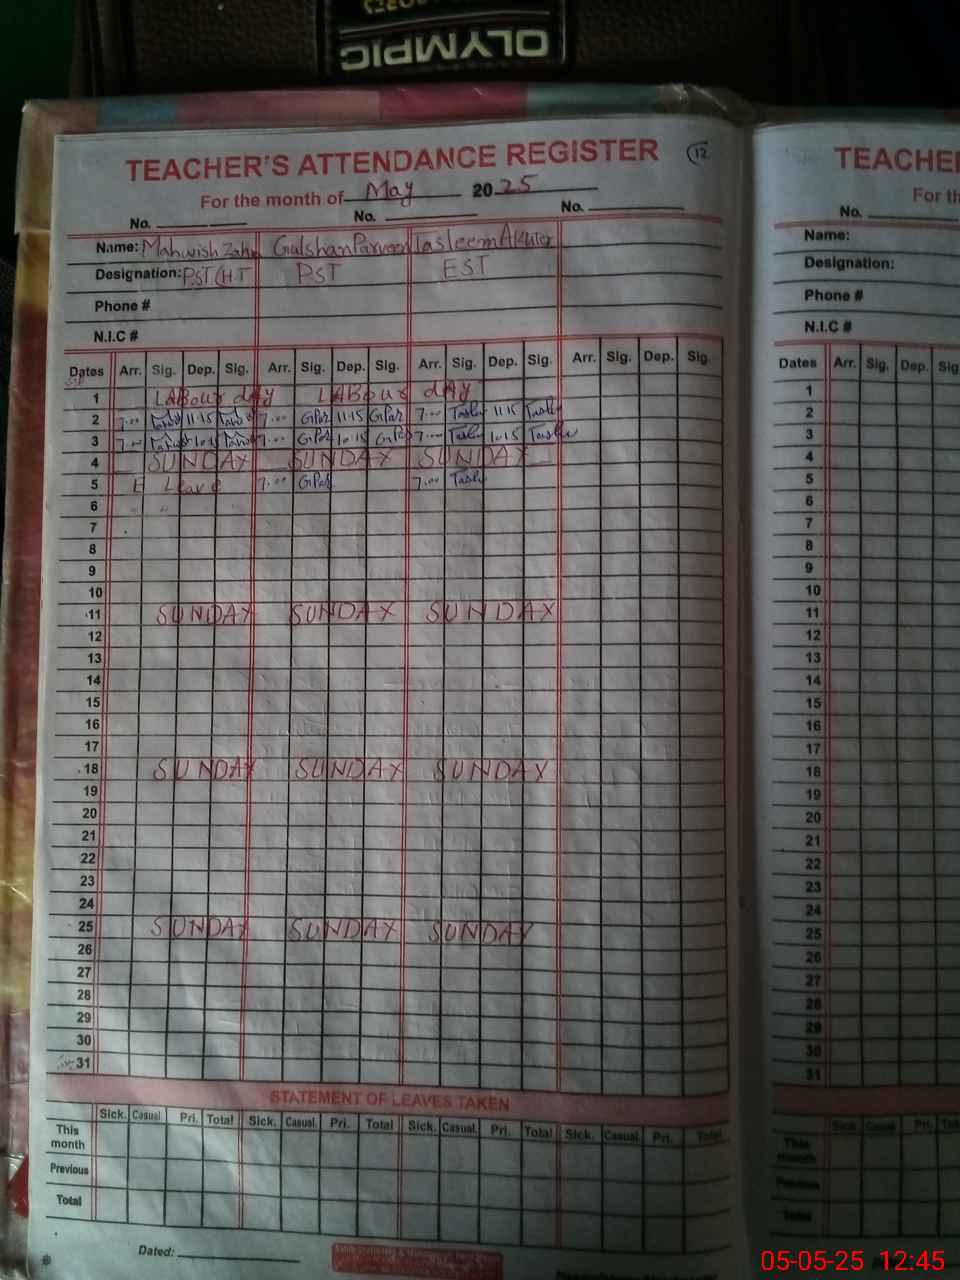 OLYMPIC
TEACHER'S ATTENDANCE REGISTER 12
For the month of May 2025
No. No. No.
Name: Mahwish Zahr Gulshan Parveen Tasleem Akhter
Designation: PST (H.T PST EST
Phone #
N.I.C #
Dates Arr. Sig. Dep. Sig. Arr. Sig. Dep. Sig. Arr. Sig. Dep. Sig. Arr. Sig. Dep. Sig.
1 LABour dAy LABour dAy
2 7.00 11.15 7.00 GPar 11.15 GPar 7.00 11.15
3 7.00 10.15 7.00 GPar 10.15 GPar 7.00 10.15
4 SUNDAY SUNDAY SUNDAY
5 E Leave 7.00 GPar 7.00
6
7
8
9
10
11 SUNDAY SUNDAY SUNDAY
12
13
14
15
16
17
18 SUNDAY SUNDAY SUNDAY
19
20
21
22
23
24
25 SUNDAY SUNDAY SUNDAY
26
27
28
29
30
31
STATEMENT OF LEAVES TAKEN
Sick. Casual. Pri. Total Sick. Casual. Pri. Total Sick. Casual. Pri. Total Sick. Casual. Pri. Total
This month
Previous
Total
Dated:
TEACHE
For th
No.
Name:
Designation:
Phone #
N.I.C #
Dates Arr. Sig. Dep. Sig
1
2
3
4
5
6
7
8
9
10
11
12
13
14
15
16
17
18
19
20
21
22
23
24
25
26
27
28
29
30
31
Sick Casual Pri.
This month
Previous
Total
05-05-25 12:45